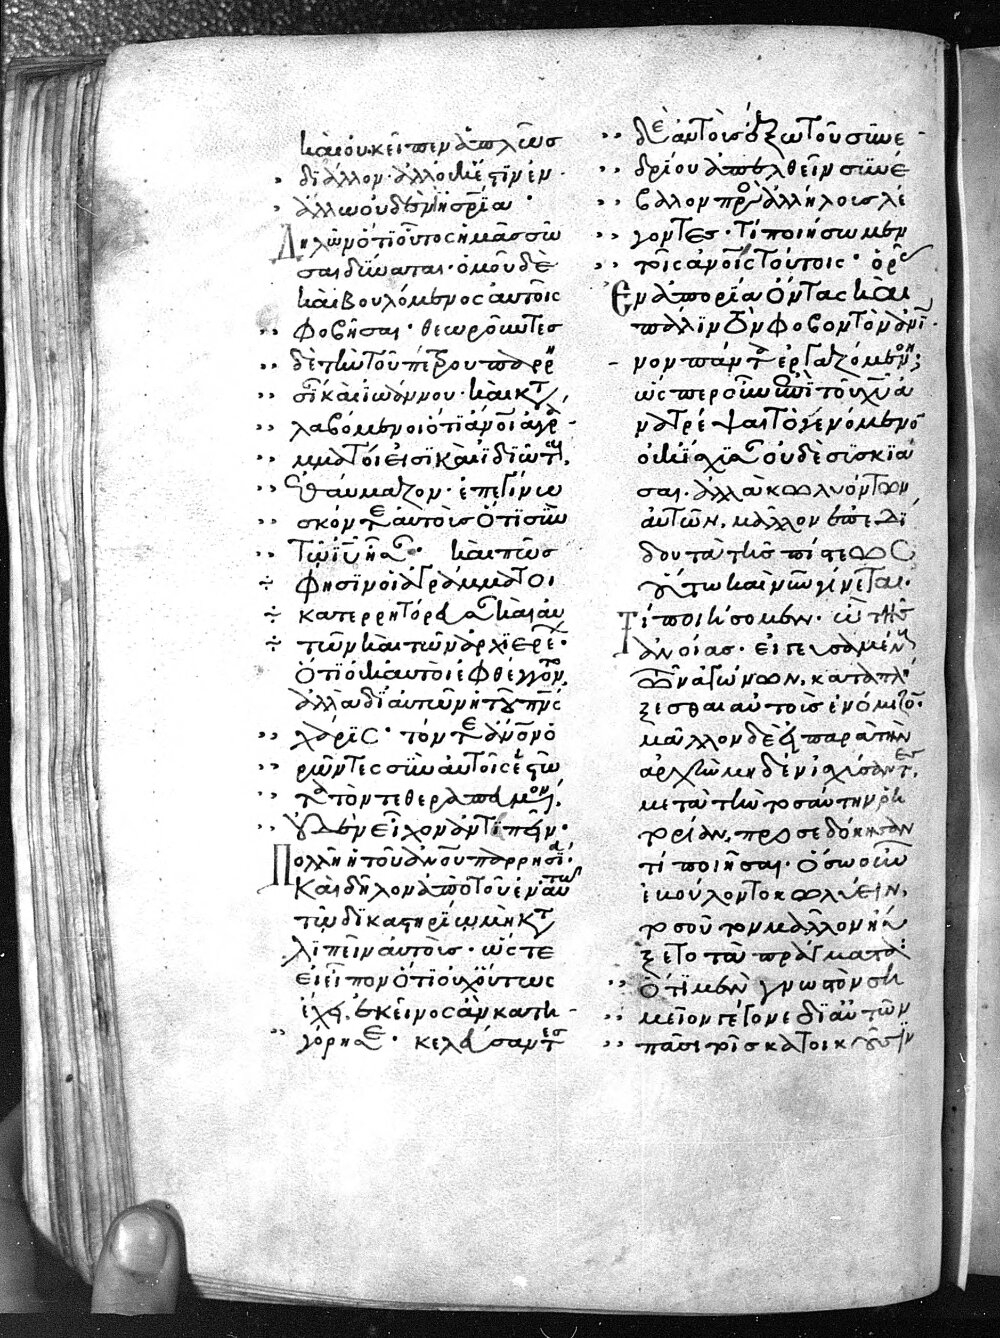 καὶ οὐκ εἶπεν ἁπλῶς
δι ἄλλου· ἀλλ οὐκ ἔστιν ἐν
ἄλλω οὐδενὶ ἡ σρία·
Δηλῶν ὅτι οὗτος ἡμᾶς σῶ
σαι δύναται· ὁμοῦ δὲ
καὶ βουλόμενος αὐτοὺς
φοβῆσαι· θεωροῦντες
δὲ τὴν τοῦ πέτρου παρρη
σίαν καὶ ἰωάννου· καὶ κατα
λαβόμενοι ὅτι ἄνοι ἀγρά
μματοί εἰσι καὶ ἰδιῶται,
ἐθαύμαζον· ἐπεγίνω
σκόν τε αὐτοὺς ὅτι σὺν
τῶ ιυ ἦσαν· καὶ πῶς
φησιν οἱ ἀγράμματοι
κατερρητόρευσαν καὶ αὐ
τῶν καὶ τῶν ἀρχιερέων·
ὅτι οὐκ αὐτοὶ ἐφθέγγοντο,
ἀλλὰ δι αὐτῶν ἡ τοῦ πνς
χάρις· τόν τε ἄνον ὁ
ρῶντες σὺν αὐτοῖς ἑστῶ
τα τὸν τεθεραπευμένον,
οὐδὲν εἶχον ἀντιπεῖν·
Πολλὴ ἡ τοῦ ἀνου παρρησία·
καὶ δῆλον ἀπὸ τοῦ ἐν αὐτῶ
τῶ δικαστηρίω μὴ κατα
λιπεῖν αὐτούς· ὥστε
εἰ εἶπον ὅτι οὐχ οὕτως
ἔχει, ἐκεῖνος ἂν κατη
γόρησε· κελεύσαντες
δὲ αὐτοὺς ἔξω τοῦ συνε
δρίου ἀπελθεῖν συνέ
βαλλον πρὸς ἀλλήλους λέ
γοντες· τί ποιήσωμεν
τοῖς ἀνοις τούτοις· ὁρᾶς
Ἐν ἀπορία ὄντας καὶ
πάλιν ὃν φόβον τὸν ἀνι
νον πάντα ἐργαζόμενον;
ὥσπερ οὖν ἐπὶ τοῦ χυ ἀ
νατρέψαι τὸ γενόμενον
οὐκ ἴσχυσαν οὐδὲ συσκιά
σαι. ἀλλὰ κωλυόντων
αὐτῶν, μᾶλλον ἐπεδί
δου τὰ τῆς πίστεως
οὕτω καὶ νῦν γίνεται.
Τί ποιήσομεν· ὢ τῆς
ἀνοίας· εἰ γευσαμένους
τῶν ἀγώνων, καταπλή
ξεσθαι αὐτοὺς ἐνόμιζον·
μᾶλλον δὲ εἰ παρὰ τὴν
ἀρχὴν μηδὲν ἰσχύσαντες,
μετὰ τὴν τοσαύτην ῥη
τορίαν, προσεδόκησαν
τί ποιῆσαι· ὅσω οὖν
ἐβούλοντο κωλύειν,
τοσοῦτον μᾶλλον ηὔ
ξετο τὰ πράγματα·
ὅτι μὲν γνωστὸν ση
μεῖον γέγονε δι αὐτῶν
πᾶσι τοῖς κατοικοῦσιν